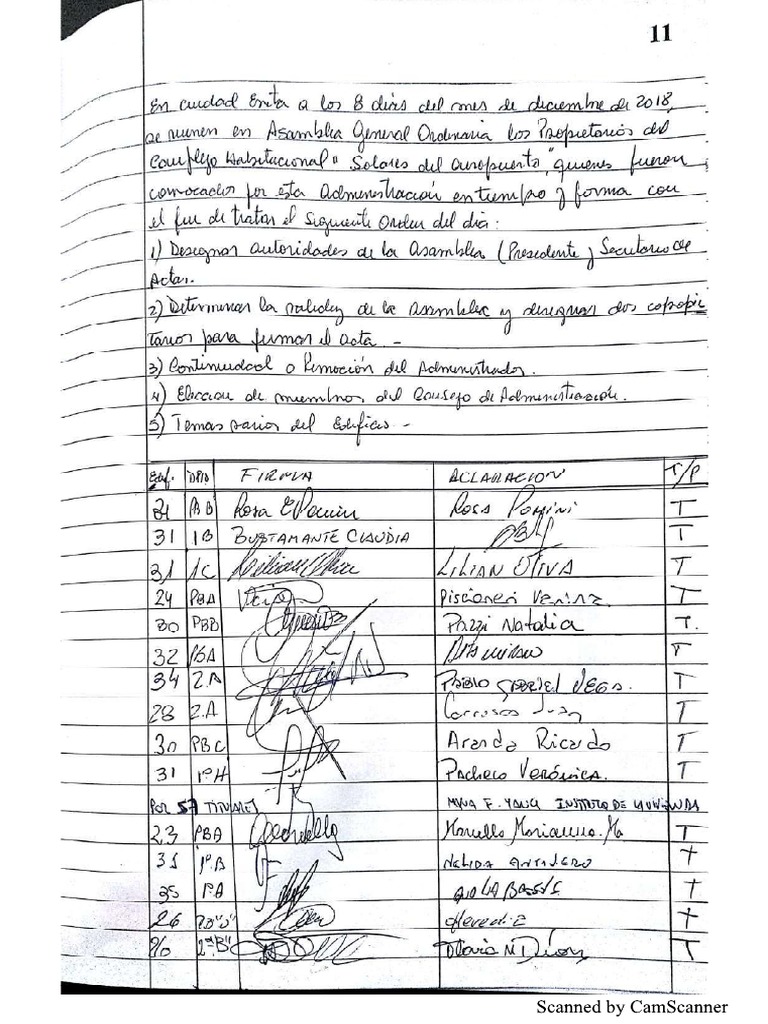 11
En ciudad Evita a los 8 días del mes de diciembre de 2018,
se reunen en Asamblea General Ordinaria los Propietarios del
Complejo Habitacional "Solares del aeropuerto," quienes fueron
convocados por esta Administración en tiempo y forma con
el fin de tratar el Siguiente Orden del dia:
1) Designar autoridades de la Asamblea (Presidente y Secretario de
Actas.
2) Determinar la validez de la Asamblea y designar dos copropie
tarios para firmar el acta. -
3) Continuidad o Remoción del Administrador.
4) Eleccion de miembros del Consejo de Administración.
5) Temas varios del Edificio -
Edif. DPTO FIRMA ACLARACION T/P
31 PB D Rosa Pomini T
31 1B BUSTAMANTE CLAUDIA T
31 1C LILIAN OLIVA T
24 PBA T
30 PBB Pazzi Natalia T.
32 PBA T
34 2.A PABLO GABRIEL VEGA. T
28 2.A Juan T
30 PBC Aranda Ricardo T
31 1ºH Pacheco Verónica. T
Por 57 TITULARES INSTITUTO DE LA VIVIENDA
23 PBA T
31 1º.B NELIDA T
35 1ºA T
26 Heredia T
2º"B" T
Scanned by CamScanner